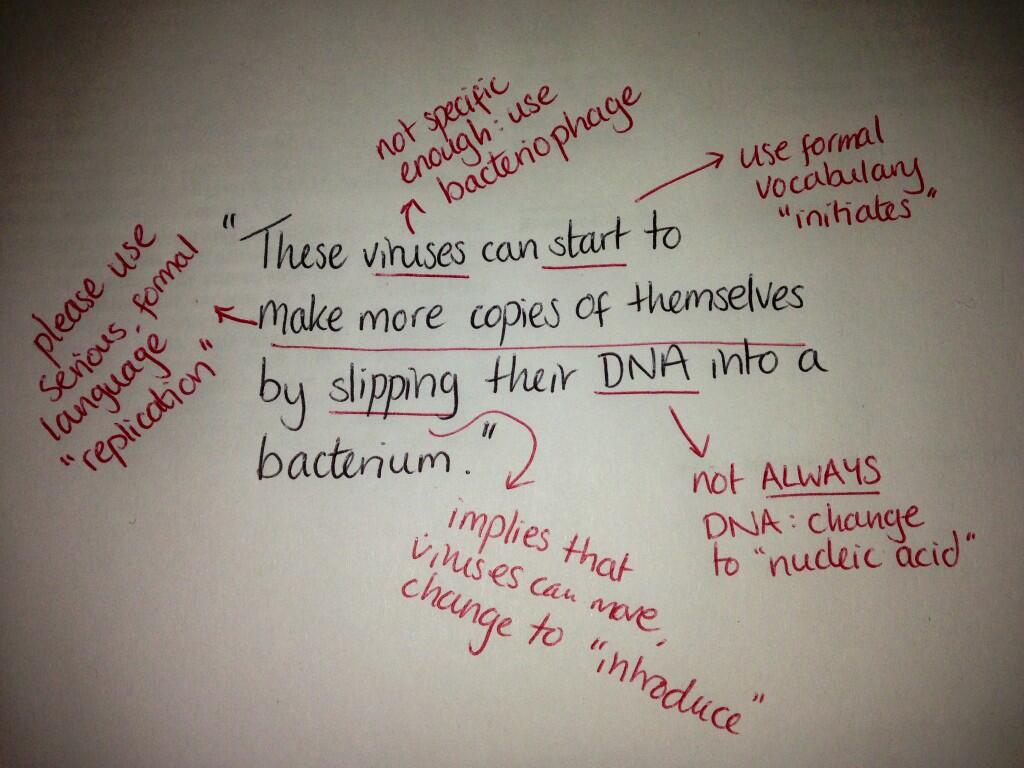 not specific
enough: use
bacteriophage
use formal
vocabulary
"initiates"
"These viruses can start to
make more copies of themselves
by slipping their DNA into a
bacterium."
please use
serious formal
language.
"replication"
implies that
viruses can move,
change to "introduce"
not ALWAYS
DNA: change
to "nucleic acid"